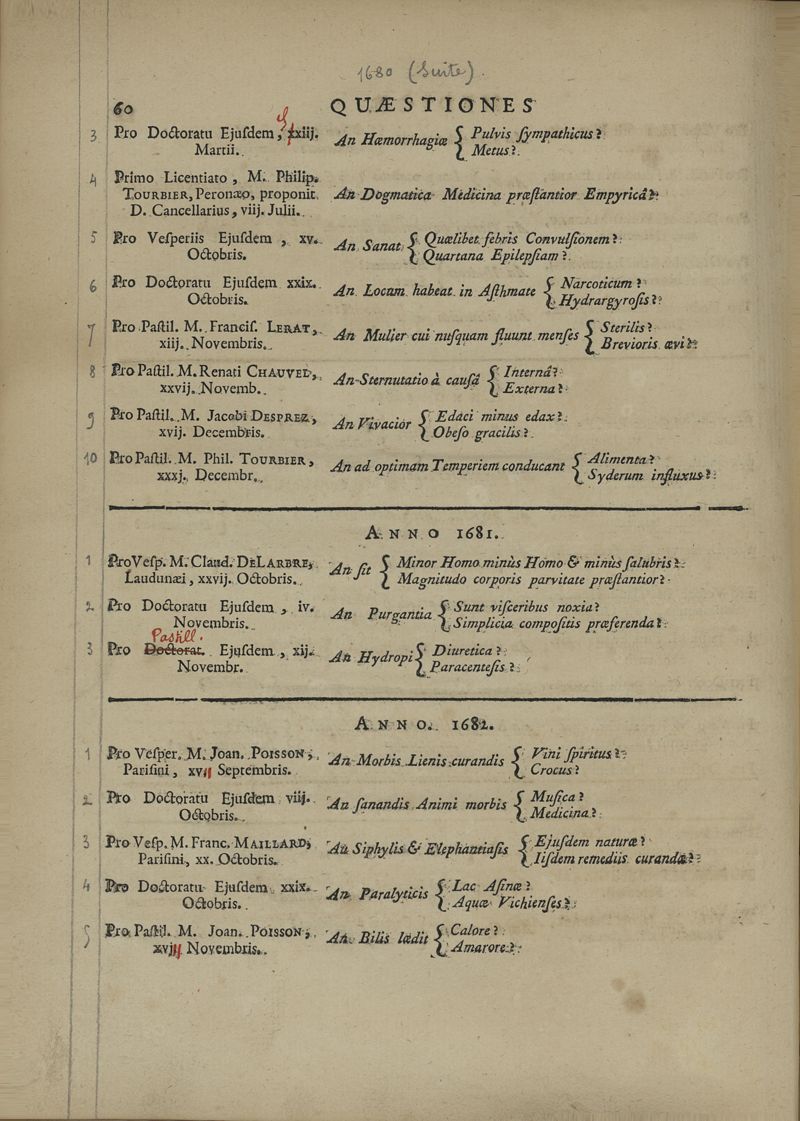 1680 (Suite).
60 QUÆSTIONES
3 Pro Doctoratu Ejusdem, xxiij. An Hæmorrhagiæ { Pulvis sympathicus?
Martii. Metus?
4 Primo Licentiato, M. Philip.
TOURBIER, Peronæo, proponit An Dogmatica Medicina præstantior Empyricâ?
D. Cancellarius, viij. Julii.
5 Pro Vesperiis Ejusdem, xv. An Sanat { Quælibet febris Convulsionem?
Octobris. Quartana Epilepsiam?
6 Pro Doctoratu Ejusdem xxix. An Locum habeat in Asthmate { Narcoticum?
Octobris. Hydrargyrosis?
7 Pro Pastil. M. Francis. LERAT, An Mulier cui nusquam fluunt menses { Sterilis?
xiij. Novembris. Brevioris ævi?
8 Pro Pastil. M. Renati CHAUVEL, An Sternutatio à causâ { Internâ?
xxvij. Novemb. Externa?
9 Pro Pastil. M. Jacobi DESPREZ, An Vivacior { Edaci minus edax?
xvij. Decembris. Obeso gracilis?
10 Pro Pastil. M. Phil. TOURBIER, An ad optimam Temperiem conducant { Alimenta?
xxxj. Decembr. Syderum influxus?
ANNO 1681.
1 Pro Vesp. M. Claud. DELARBRE, An sit { Minor Homo minùs Homo & minùs salubris?
Laudunæi, xxvij. Octobris. Magnitudo corporis parvitate præstantior?
2 Pro Doctoratu Ejusdem, iv. An Purgantia { Sunt visceribus noxia?
Novembris. Simplicia compositis præferenda?
Pastill.
3 Pro Doctorat. Ejusdem, xij. An Hydropi { Diuretica?
Novembr. Paracentesis?
ANNO. 1682.
1 Pro Vesper. M. Joan. POISSON, An Morbis Lienis curandis { Vini spiritus?
Parisini, xvij Septembris. Crocus?
2 Pro Doctoratu Ejusdem viij. An sanandis Animi morbis { Musica?
Octobris. Medicina?
3 Pro Vesp. M. Franc. MAILLARD, An Siphylis & Elephantiasis { Ejusdem naturæ?
Parisini, xx. Octobris. Iisdem remediis curandæ?
4 Pro Doctoratu Ejusdem xxix. An Paralyticis { Lac Asinæ?
Octobris. Aquæ Vichienses?
5 Pro Pastil. M. Joan. POISSON, An Bilis lædit { Calore?
xvij Novembris. Amarore?